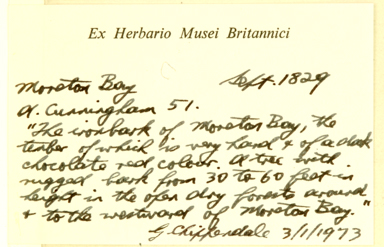 Ex Herbario Musei Britannici
Moreton Bay Sept. 1829
A. Cunningham 51.
"The ironbark of Moreton Bay, the
timber of which is very hard & of a dark
chocolate red colour. A tree with
rugged bark from 30 to 60 feet in
height in the open dry forests around
& to the westward of Moreton Bay."
G. Chippendale 3/1/1973